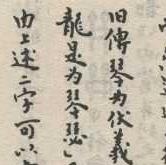 旧傳琴为伏義
龍是为琴瑟
由上述二字可以